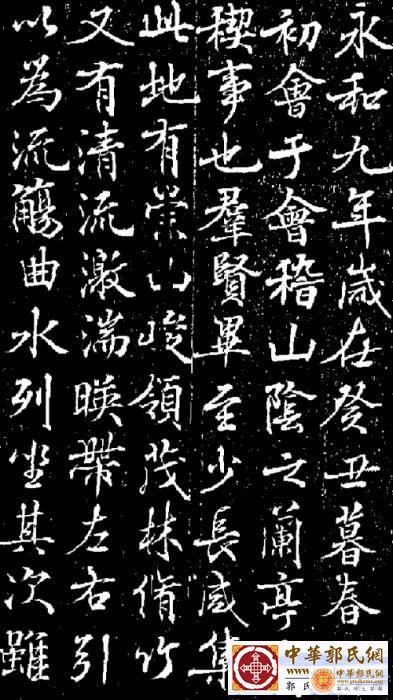 永和九年歲在癸丑暮春
初會于會稽山陰之蘭亭
禊事也羣賢畢至少長咸集
此地有崇山峻領茂林脩竹
又有清流激湍暎帶左右引
以為流觴曲水列坐其次雖
中華郭氏網
中華郭氏網